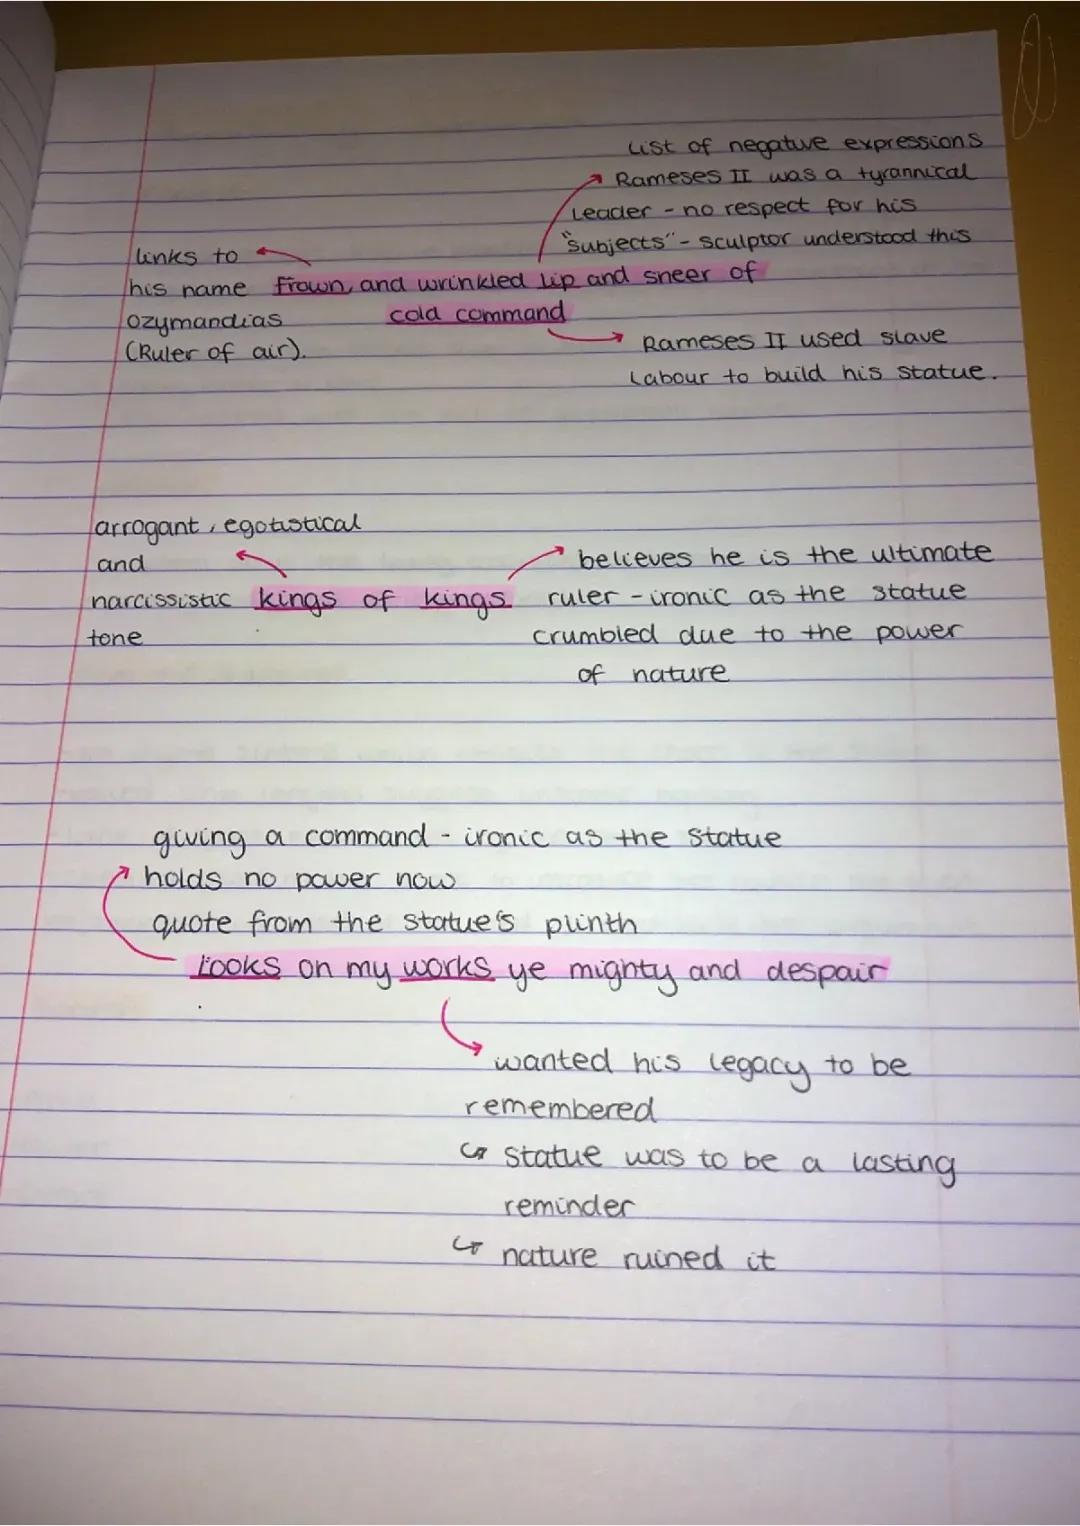 List of negative expressions
Rameses II was a tyrannical
Leader - no respect for his
"subjects" - sculptor understood this
links to
his name
ozymandias
(Ruler of air).
frown, and wrinkled lip and sneer of
cold command
Rameses II used slave
Labour to build his statue.
arrogant, egotistical
and
narcissistic
tone
kings of kings
believes he is the ultimate
ruler - ironic as the statue
crumbled due to the power
of nature
giving a command - ironic as the statue
holds no power now
quote from the statue's plinth
Looks on my works ye mighty and despair
wanted his legacy to be
remembered
↳ statue was to be a lasting
reminder
↳ nature ruined it